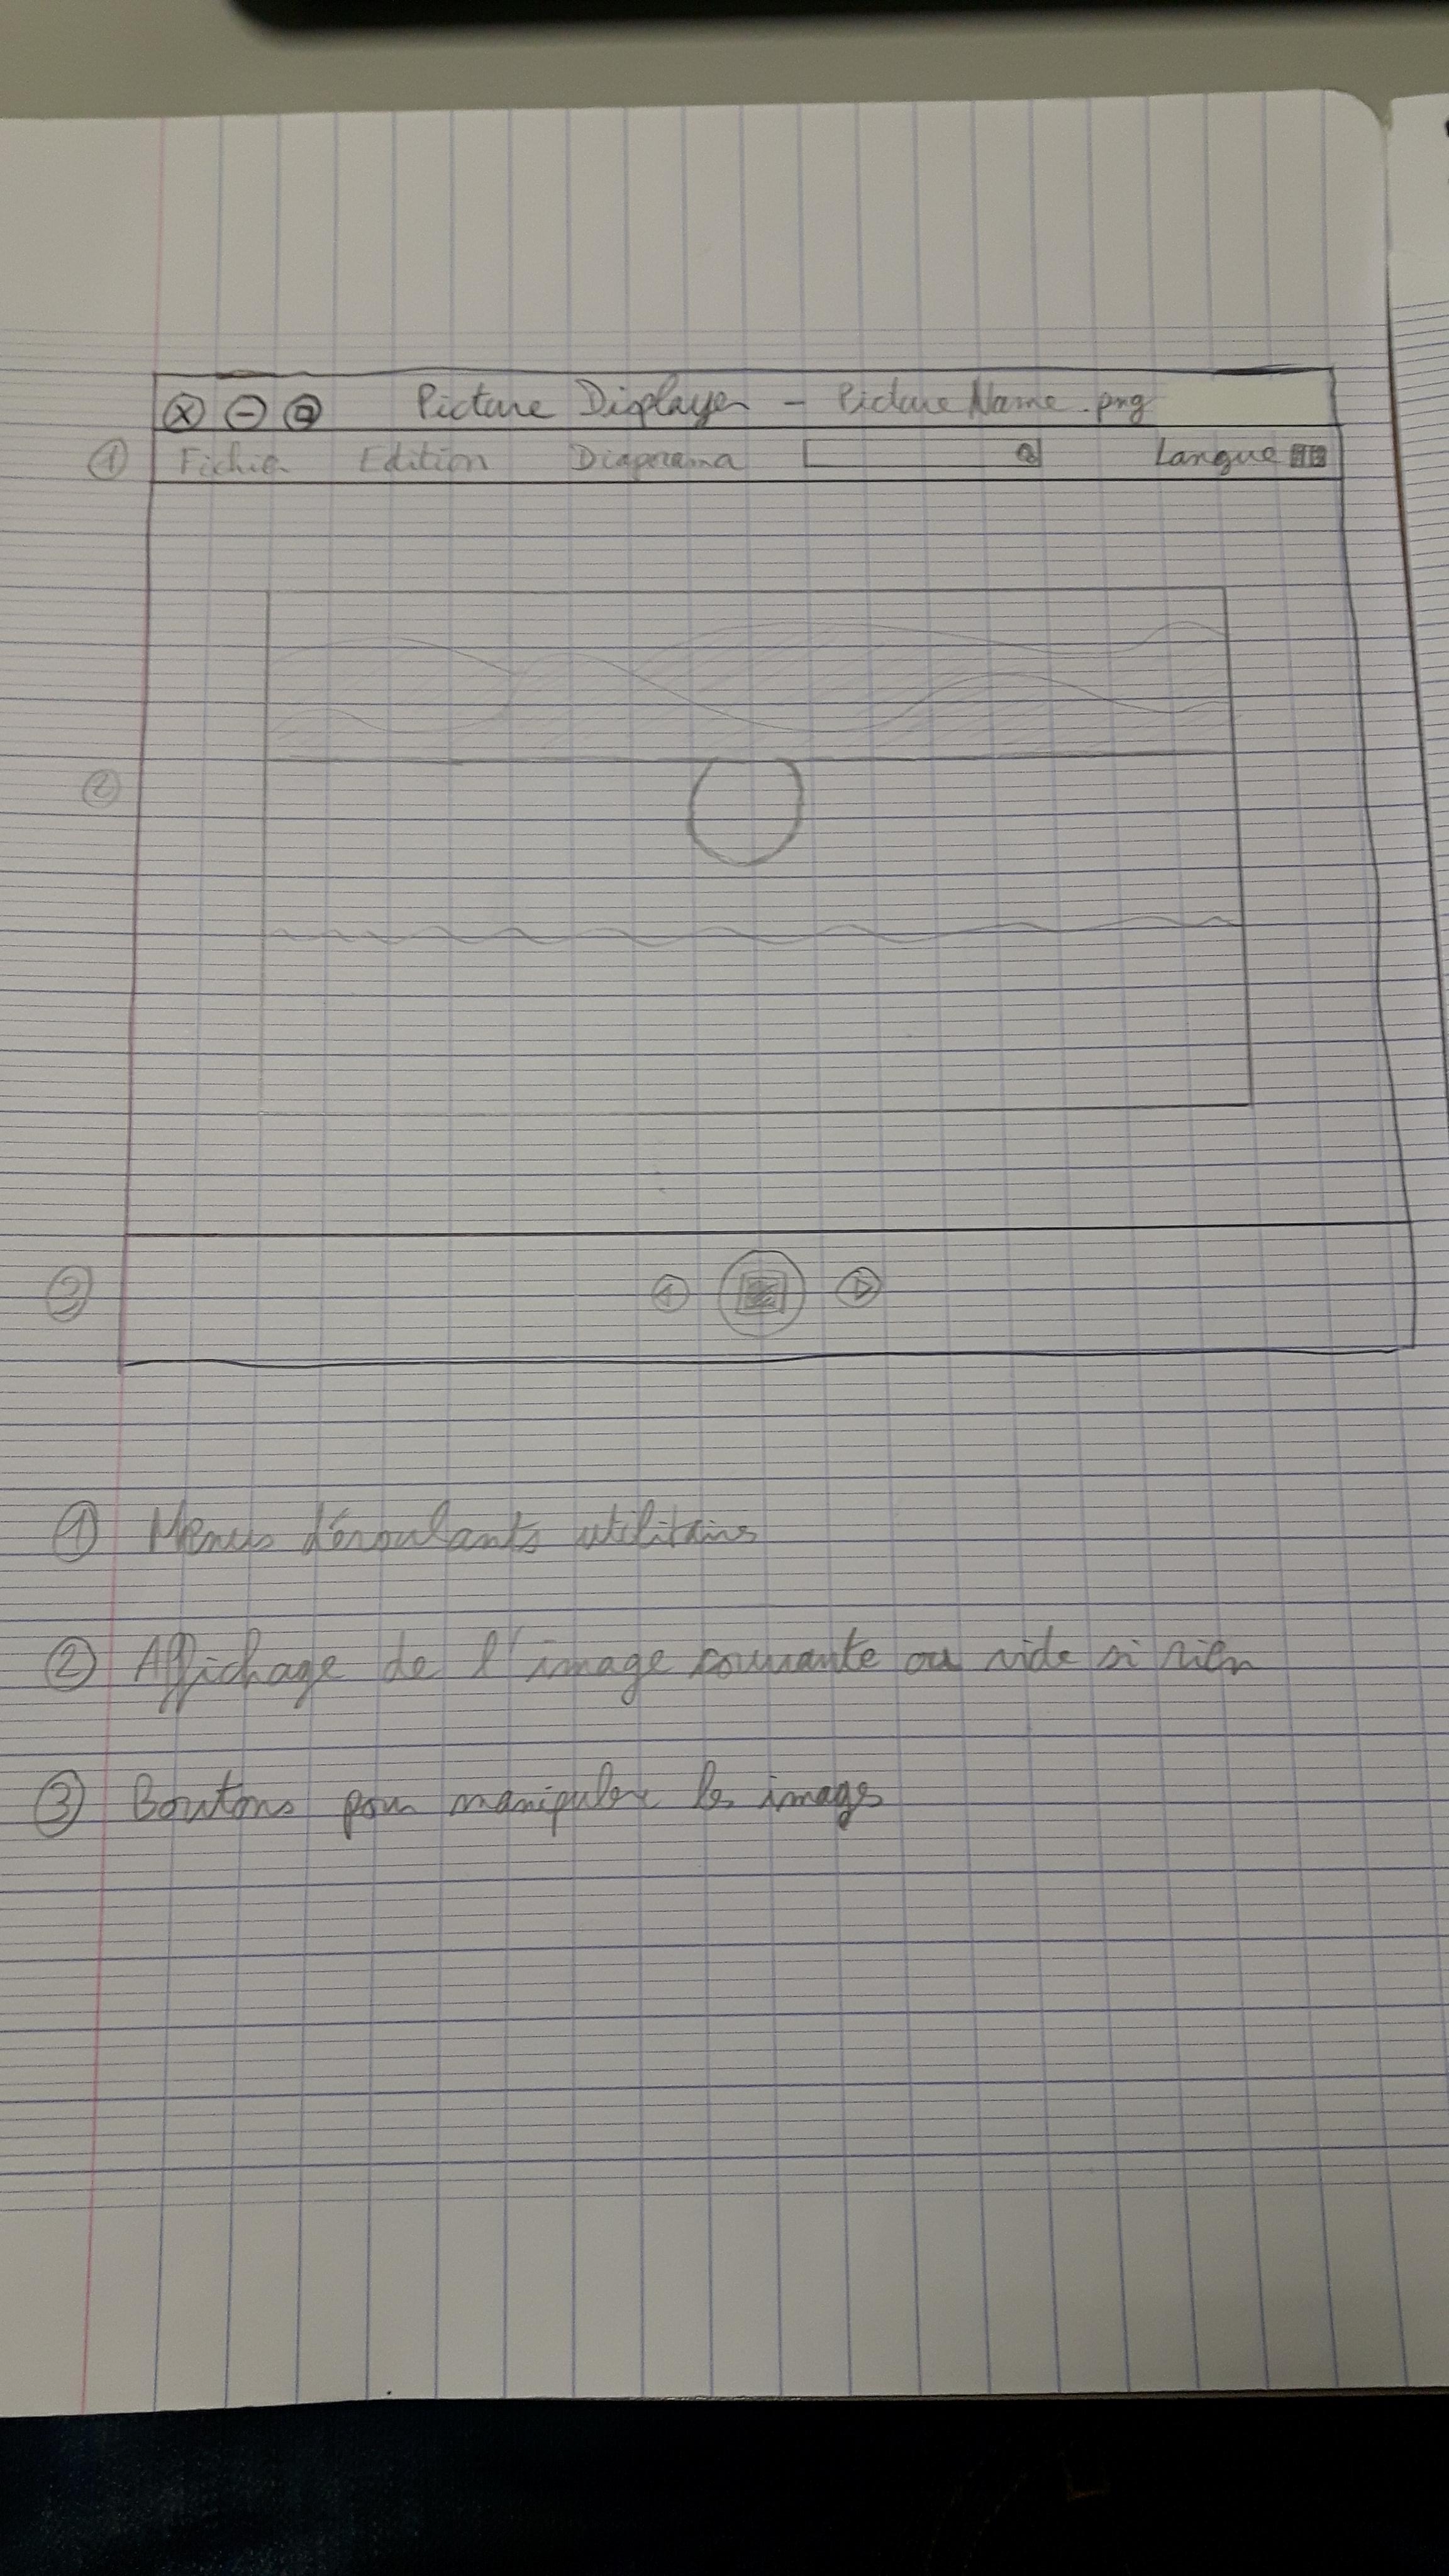 Picture Displayer - Picture Name.png
① Fichier Edition Diaporama Langue
②
③
① Menus déroulants utilitaires
② Affichage de l'image courante ou vide si rien
③ Boutons pour manipuler les images